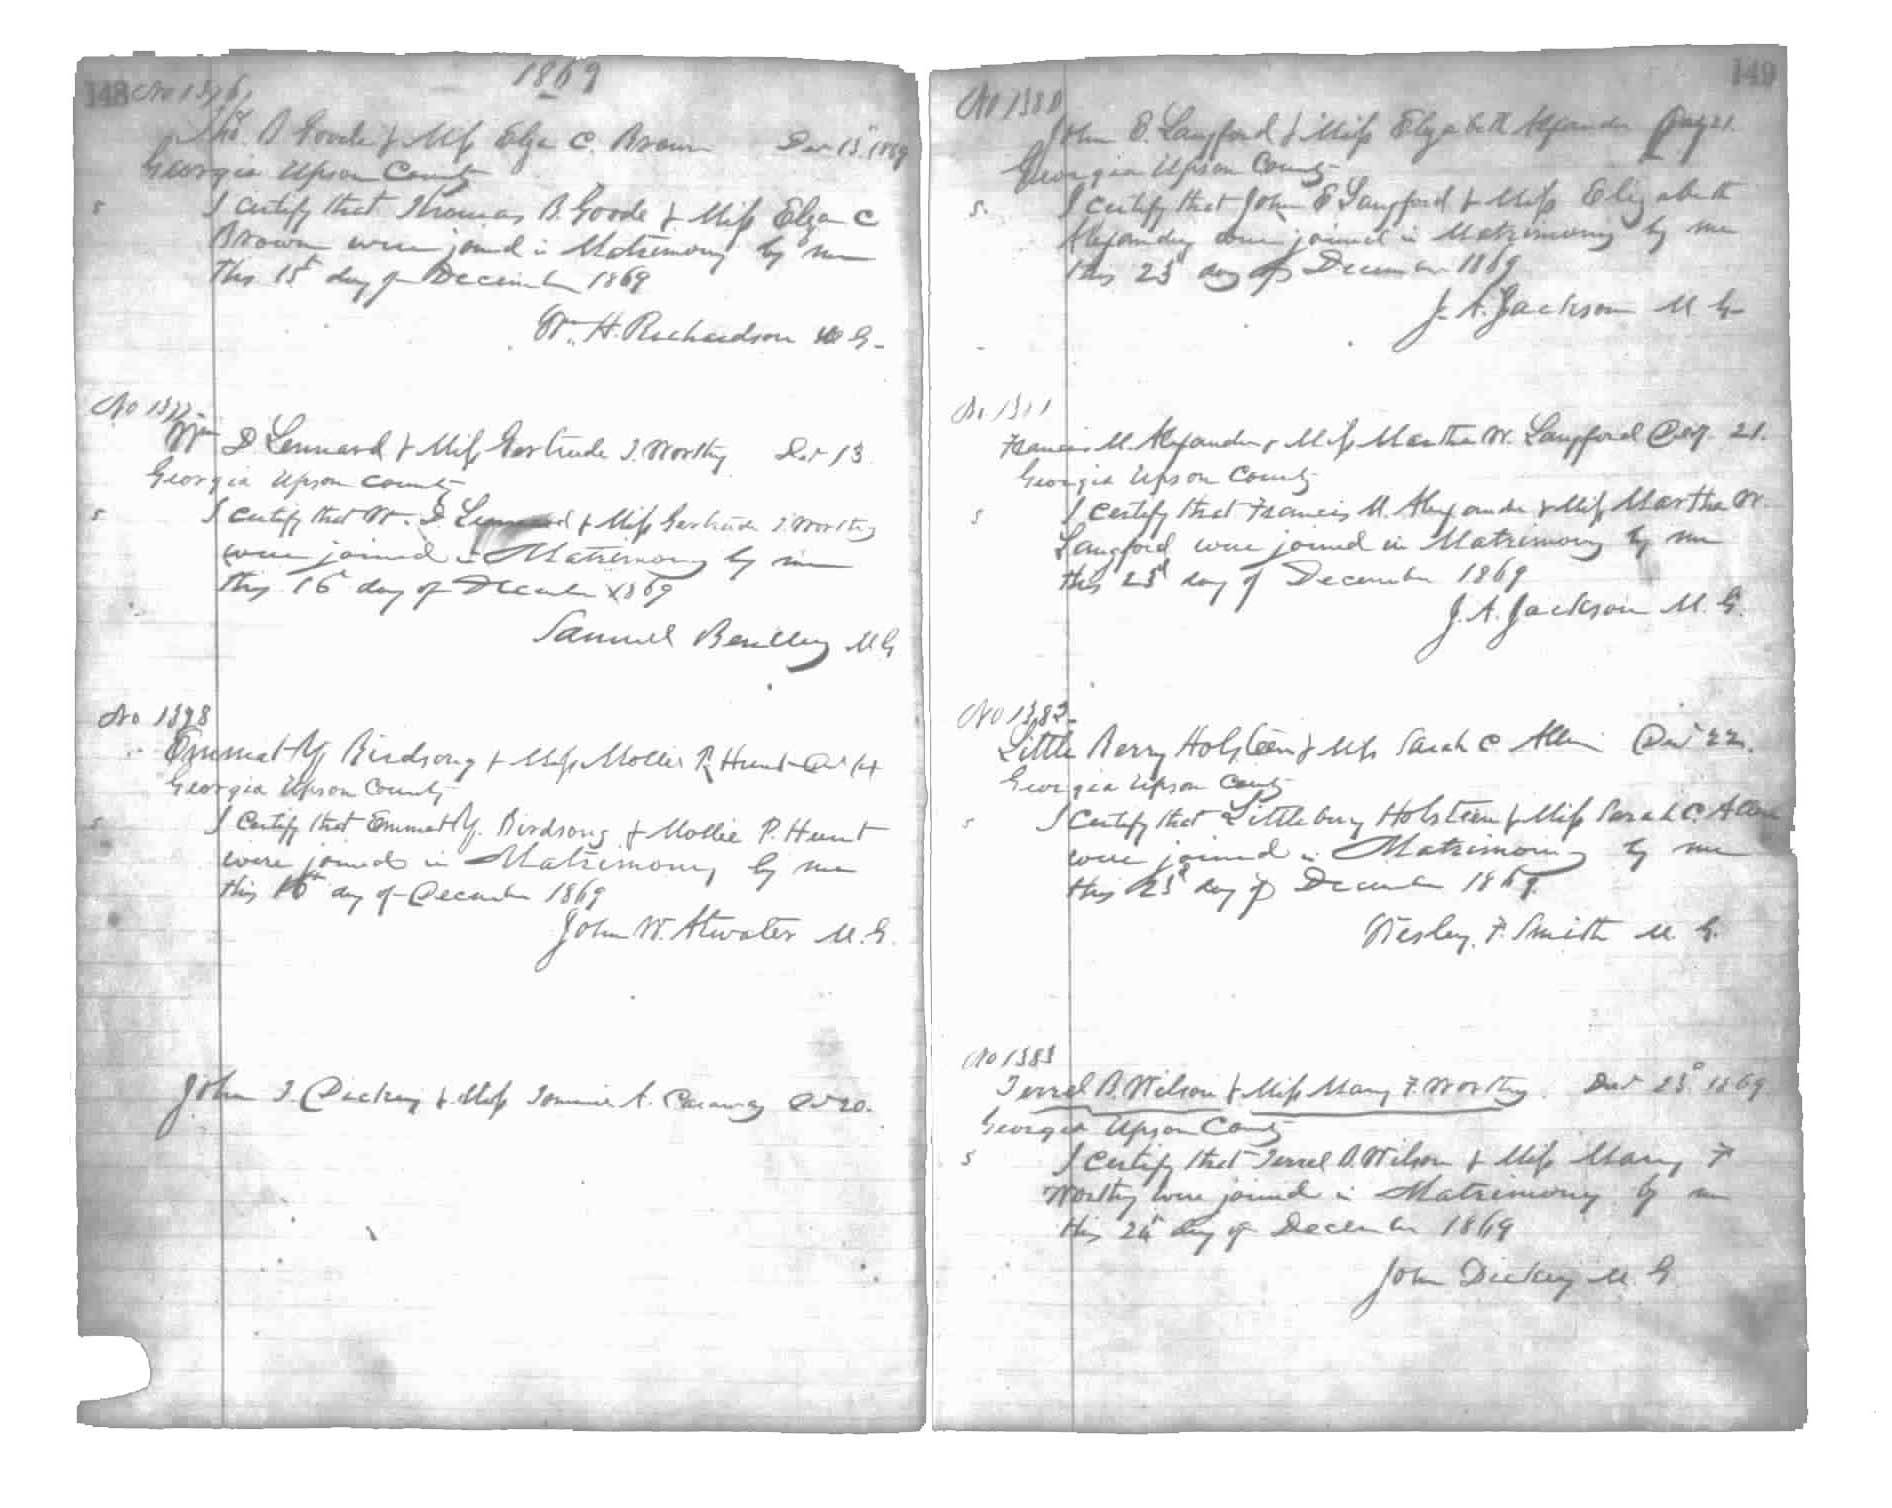 148 No 1376
1869
Thos. B Goode & Miss Elza C. Brown Dec 13th 1869
Georgia Upson County
s I certify that Thomas B. Goode & Miss Elza C
Brown were joined in Matrimony by me
this 15th day of December 1869
Wm. H. Richardson M G.
No 1377
Wm D Lennard & Miss Gertrude J. Worthy Dec 13
Georgia Upson County
s I certify that W. D. Lennard & Miss Gertrude J Worthy
were joined in Matrimony by me
this 16th day of December 1869
Samuel M G
No 1378
Emmat Y Birdsong & Miss Mollie P. Hunt Dec 14
Georgia Upson County
s I certify that Emmat Y. Birdsong & Mollie P. Hunt
were joined in Matrimony by me
this 16th day of December 1869
John W. Atwater M. G.
John J Dickey & Miss Tommie A. Caraway Dec 20.
149
No 1380
John E. Langford & Miss Elizabeth Alexander 21.
Georgia Upson County
s. I certify that John E Langford & Miss Elizabeth
Alexander were joined in Matrimony by me
this 23d day of December 1869
J. A. Jackson M G
No 1381
Francis M. Alexander & Miss Martha W. Langford Dec 21.
Georgia Upson County
s I certify that Francis M. Alexander & Miss Martha W.
Langford were joined in Matrimony by me
this 23d day of December 1869
J. A. Jackson M. G.
No 1382
Little Berry Holsteen & Miss Sarah C Allen Dec 22.
Georgia Upson County
s I certify that Littlebury Holsteen & Miss Sarah C. Allen
were joined in Matrimony by me
this 23d day of December 1869
Wesley. F. Smith M. G.
No 1383
Terrel B. Wilson & Miss Mary F. Worthy. Dec 23d 1869.
Georgia Upson County
s I certify that Terrel B. Wilson & Miss Mary F
Worthy were joined in Matrimony by me
this 24th day of December 1869
John Dickey M. G